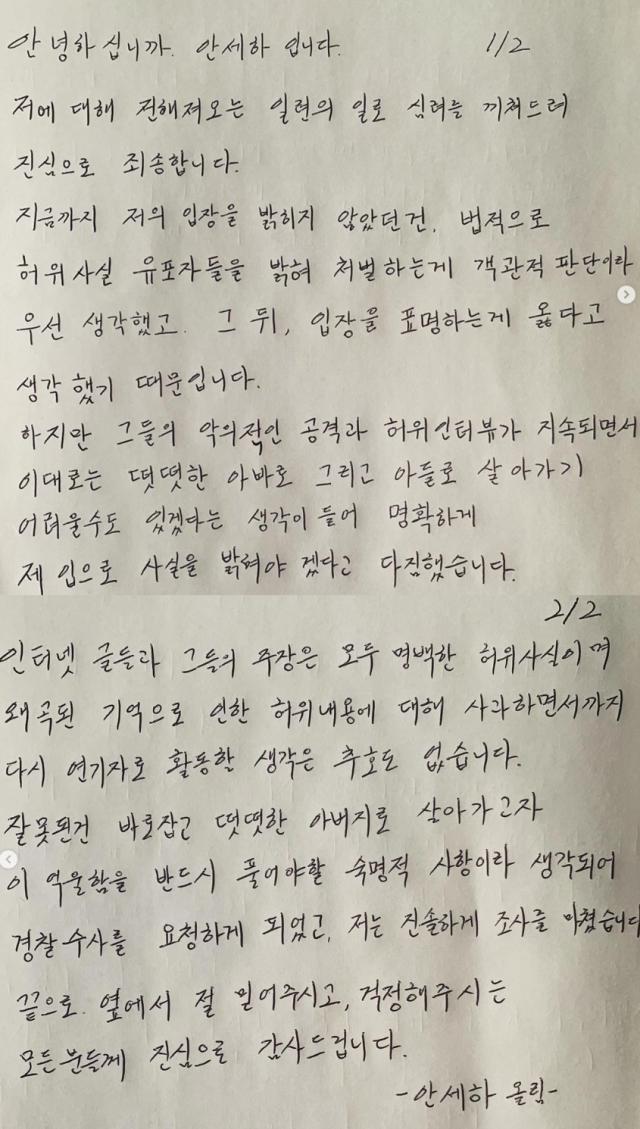 안녕하십니까. 안세하 입니다. 1/2
저에 대해 전해져오는 일련의 일로 심려를 끼쳐드려
진심으로 죄송합니다.
지금까지 저의 입장을 밝히지 않았던건. 법적으로
허위사실 유포자들을 밝혀 처벌하는게 객관적 판단이라
우선 생각했고. 그 뒤, 입장을 표명하는게 옳다고
생각했기 때문입니다.
하지만 그들의 악의적인 공격과 허위인터뷰가 지속되면서
이대로는 떳떳한 아빠로 그리고 아들로 살아가기
어려울수도 있겠다는 생각이 들어 명확하게
제 입으로 사실을 밝혀야 겠다고 다짐했습니다.
2/2
인터넷 글들과 그들의 주장은 모두 명백한 허위사실이며
왜곡된 기억으로 인한 허위내용에 대해 사과하면서까지
다시 연기자로 활동할 생각은 추호도 없습니다.
잘못된건 바로잡고 떳떳한 아버지로 살아가고자
이 억울함을 반드시 풀어야할 숙명적 사항이라 생각되어
경찰수사를 요청하게 되었고, 저는 진솔하게 조사를 마쳤습니다
끝으로. 옆에서 절 믿어주시고, 걱정해주시는
모든분들께 진심으로 감사드립니다.
-안세하 올림-